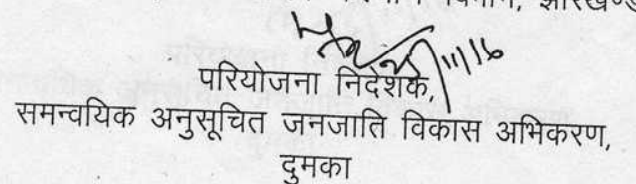 झारखण्ड
11/16
परियोजना निदेशक,
समन्वयिक अनुसूचित जनजाति विकास अभिकरण,
दुमका